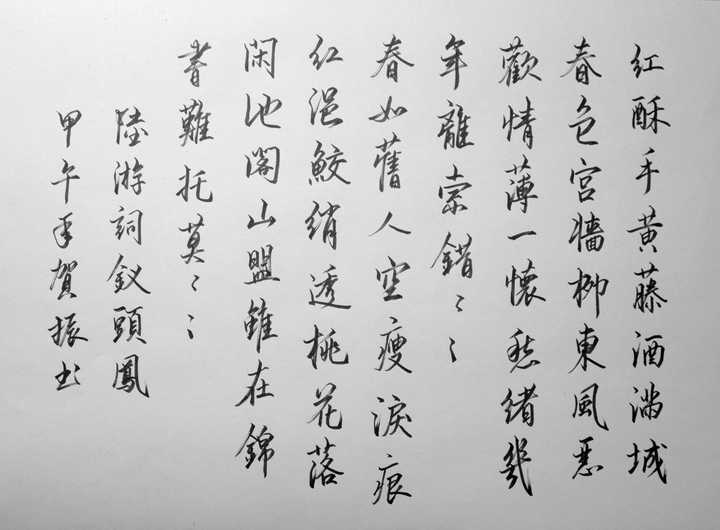 红酥手黃藤酒滿城
春色宮牆柳東風惡
歡情薄一懷愁緒幾
年離索錯〻〻
春如舊人空瘦淚痕
红浥鮫綃透桃花落
閑池閣山盟雖在錦
書難托莫〻〻
陸游詞釵頭鳳
甲午年賀振书